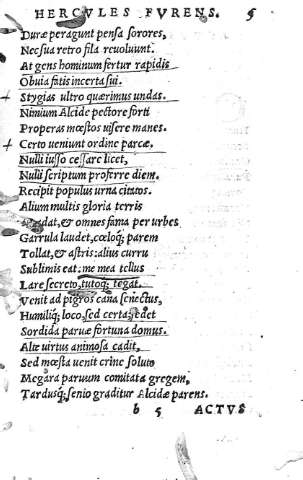 HERCVLES FVRENS. 5
Duræ peragunt pensa sorores,
Nec sua retro fila reuoluunt.
At gens hominum fertur rapidis
Obuia fatis incerta sui.
Stygias ultro quærimus undas.
Nimium Alcide pectore forti
Properas mœstos uisere manes.
Certo ueniunt ordine parcæ,
Nulli iusso cessare licet,
Nulli scriptum proferre diem.
Recipit populus urna citatos.
Alium multis gloria terris
&, & omnes fama per urbes
Garrula laudet, cœloq; parem
Tollat, & astris: alius curru
Sublimis eat: me mea tellus
Lare secreto, tutoq; tegat.
Venit ad pigros cana senectus,
Humiliq; loco, sed certa sedet
Sordida paruæ fortuna domus.
Alte uirtus animosa cadit,
Sed mœsta uenit crine soluto
Megara paruum comitata gregem,
Tardusq; senio graditur Alcidæ parens.
b 5 ACTVS